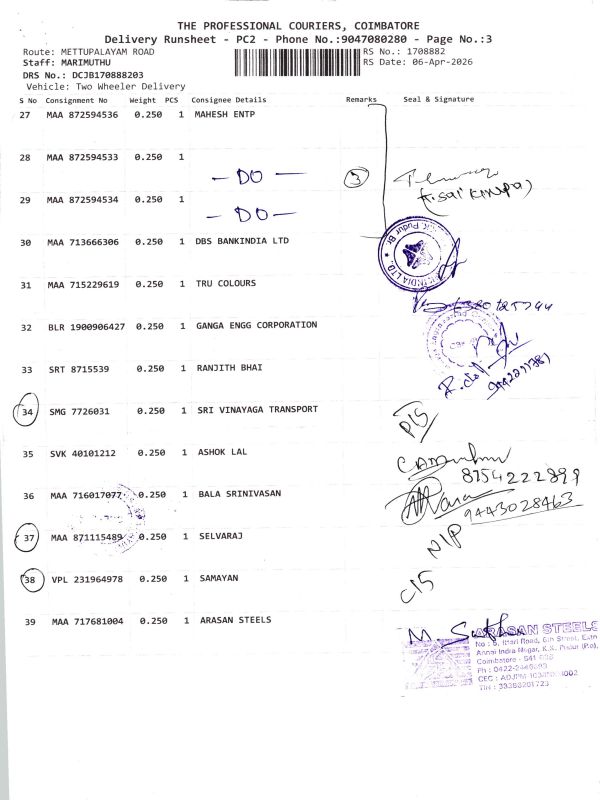 THE PROFESSIONAL COURIERS, COIMBATORE
Delivery Runsheet - PC2 - Phone No.:9047080280 - Page No.:3
Route: METTUPALAYAM ROAD RS No.: 1708882
Staff: MARIMUTHU RS Date: 06-Apr-2026
DRS No.: DCJB170888203
Vehicle: Two Wheeler Delivery
S No Consignment No Weight PCS Consignee Details Remarks Seal & Signature
27 MAA 872594536 0.250 1 MAHESH ENTP
28 MAA 872594533 0.250 1
- DO - 3
29 MAA 872594534 0.250 1
- DO -
30 MAA 713666306 0.250 1 DBS BANKINDIA LTD
31 MAA 715229619 0.250 1 TRU COLOURS
32 BLR 1900906427 0.250 1 GANGA ENGG CORPORATION
33 SRT 8715539 0.250 1 RANJITH BHAI
34 SMG 7726031 0.250 1 SRI VINAYAGA TRANSPORT
35 SVK 40101212 0.250 1 ASHOK LAL
8754222899
36 MAA 716017077 0.250 1 BALA SRINIVASAN
9443028463
37 MAA 871115489 0.250 1 SELVARAJ
N/P
38 VPL 231964978 0.250 1 SAMAYAN
C/S
39 MAA 717681004 0.250 1 ARASAN STEELS
ARASAN STEELS
Annai Indra Nagar, K.K. Pudur (Po),
Coimbatore - 641 038
TIN : 33388201723